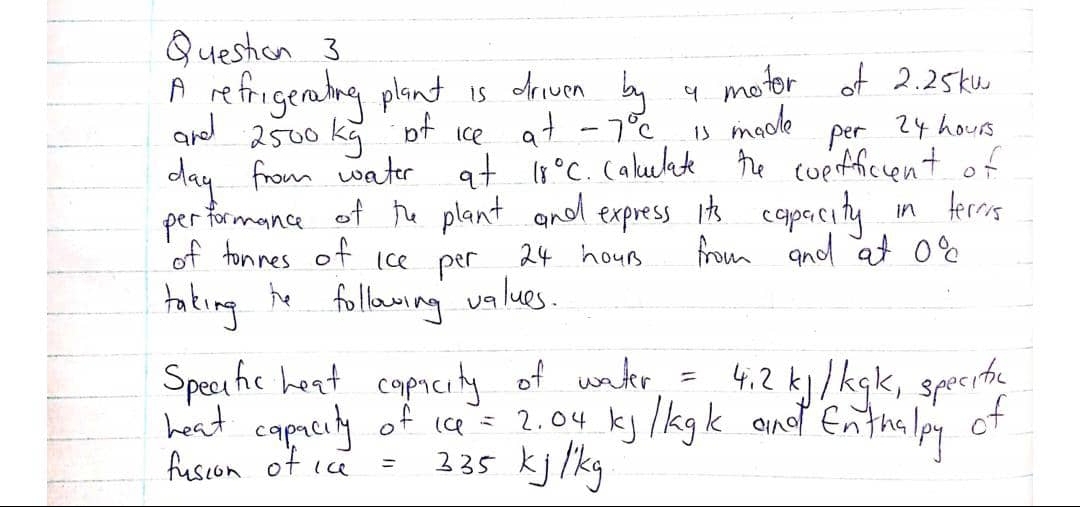 Question 3
A refrigerating plant is driven by a motor of 2.25kw
and 2500 kg of ice at -7°C is made per 24 hours
day from water at 18°C. Calculate the coefficient of
performance of the plant and express its capacity in terms
of tonnes of ice per 24 hours from and at 0°C
taking the following values.
Specific heat capacity of water = 4.2 kj/kgk, specific
heat capacity of ice = 2.04 kj/kgk and Enthalpy of
fusion of ice = 335 kj/kg